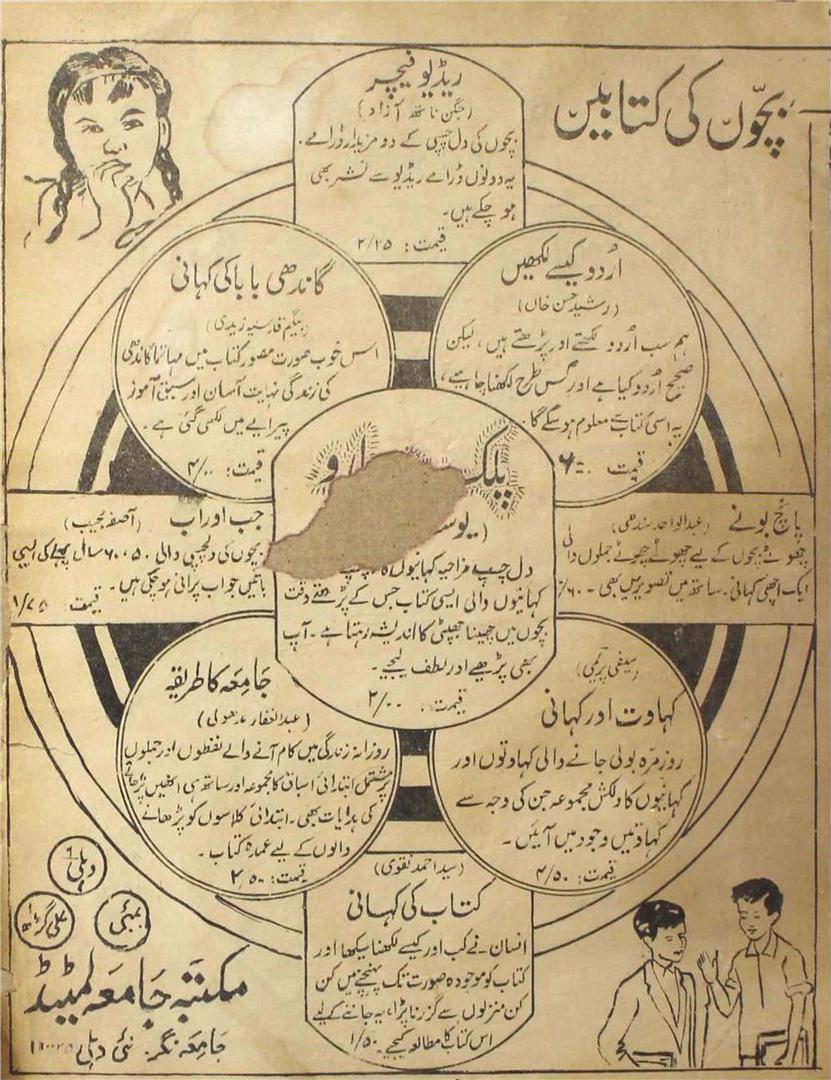 بچّوں کی کتابیں
ریڈیو فیچر
(جگن ناتھ آزاد)
بچوں کی دل چسپی کے دو مزیدار ڈرامے۔
یہ دونوں ڈرامے ریڈیو سے نشر بھی
ہو چکے ہیں۔
قیمت: ۲/۲۵
اُردو کیسے لکھیں
(رشید حسن خاں)
ہم سب اُردو لکھتے اور پڑھتے ہیں، لیکن
صحیح اُردو کیا ہے اور کس طرح لکھنا چاہیے،
یہ اسی کتاب سے معلوم ہو سکے گا۔
قیمت
گاندھی بابا کی کہانی
(بیگم قدسیہ زیدی)
اس خوب صورت مصور کتاب میں مہاتما گاندھی
کی زندگی نہایت آسان اور سبق آموز
پیرایے میں لکھی گئی ہے۔
قیمت: ۴/۰۰
پلک
(یوس
دل چسپ مزاحیہ کہانیوں کا
کہانیوں والی ایسی کتاب جس کے پڑھتے وقت
بچوں میں چھینا جھپٹی کا اندیشہ رہتا ہے۔ آپ
بھی پڑھیے اور لطف لیجیے۔
قیمت: ۲/۰۰
پانچ بونے (عبدالواحد سندھی)
چھوٹے بچوں کے لیے چھوٹے چھوٹے جملوں والی
ایک اچھی کہانی۔ ساتھ میں تصویریں بھی۔ ۱/۶۰
جب اور اب (آصفہ مجیب)
بچوں کی دلچسپی والی ۵۰، ۶۰ سال پہلے کی ایسی
باتیں جو اب پرانی ہو چکی ہیں۔ قیمت: ۱/۷۵
(سیفی پریمی)
کہاوت اور کہانی
روز مرّہ بولی جانے والی کہاوتوں اور
کہانیوں کا دلکش مجموعہ جن کی وجہ سے
کہاوتیں وجود میں آئیں۔
قیمت: ۴/۵۰
جامعہ کا طریقہ
(عبدالغفار مدھولی)
روزانہ زندگی میں کام آنے والے لفظوں اور جملوں
پر مشتمل ابتدائی اسباق کا مجموعہ اور ساتھ ہی انھیں پڑھانے
کی ہدایات بھی۔ ابتدائی کلاسوں کو پڑھانے
والوں کے لیے عمدہ کتاب۔
قیمت: ۲/۵۰
(سید احمد نقوی)
کتاب کی کہانی
انسان نے کب اور کیسے لکھنا سیکھا اور
کتاب کو موجودہ صورت تک پہنچنے میں کن
کن منزلوں سے گزرنا پڑا، یہ جاننے کے لیے
اس کتاب کا مطالعہ کیجیے۔ ۱/۵۰
دہلی ۶
بمبئی
علی گڑھ
مکتبہ جامعہ لمیٹڈ
جامعہ نگر۔ نئی دہلی ۱۱۰۰۲۵